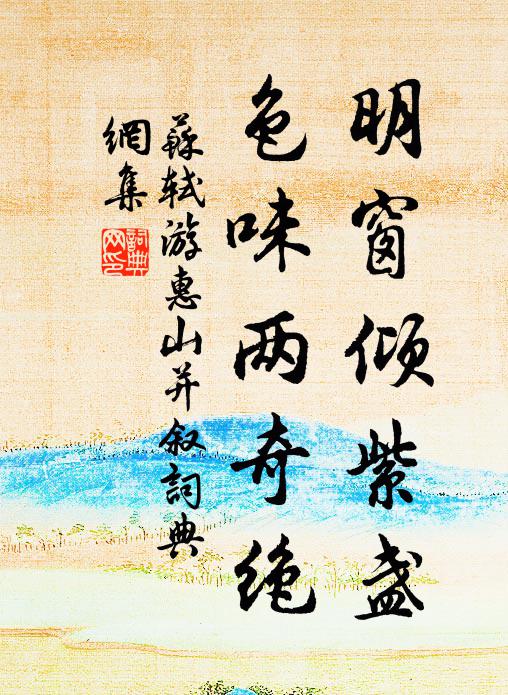 明窗倾紫盏
色味两奇绝
蘇轼游惠山并叙詞典
網集
詞典
网印